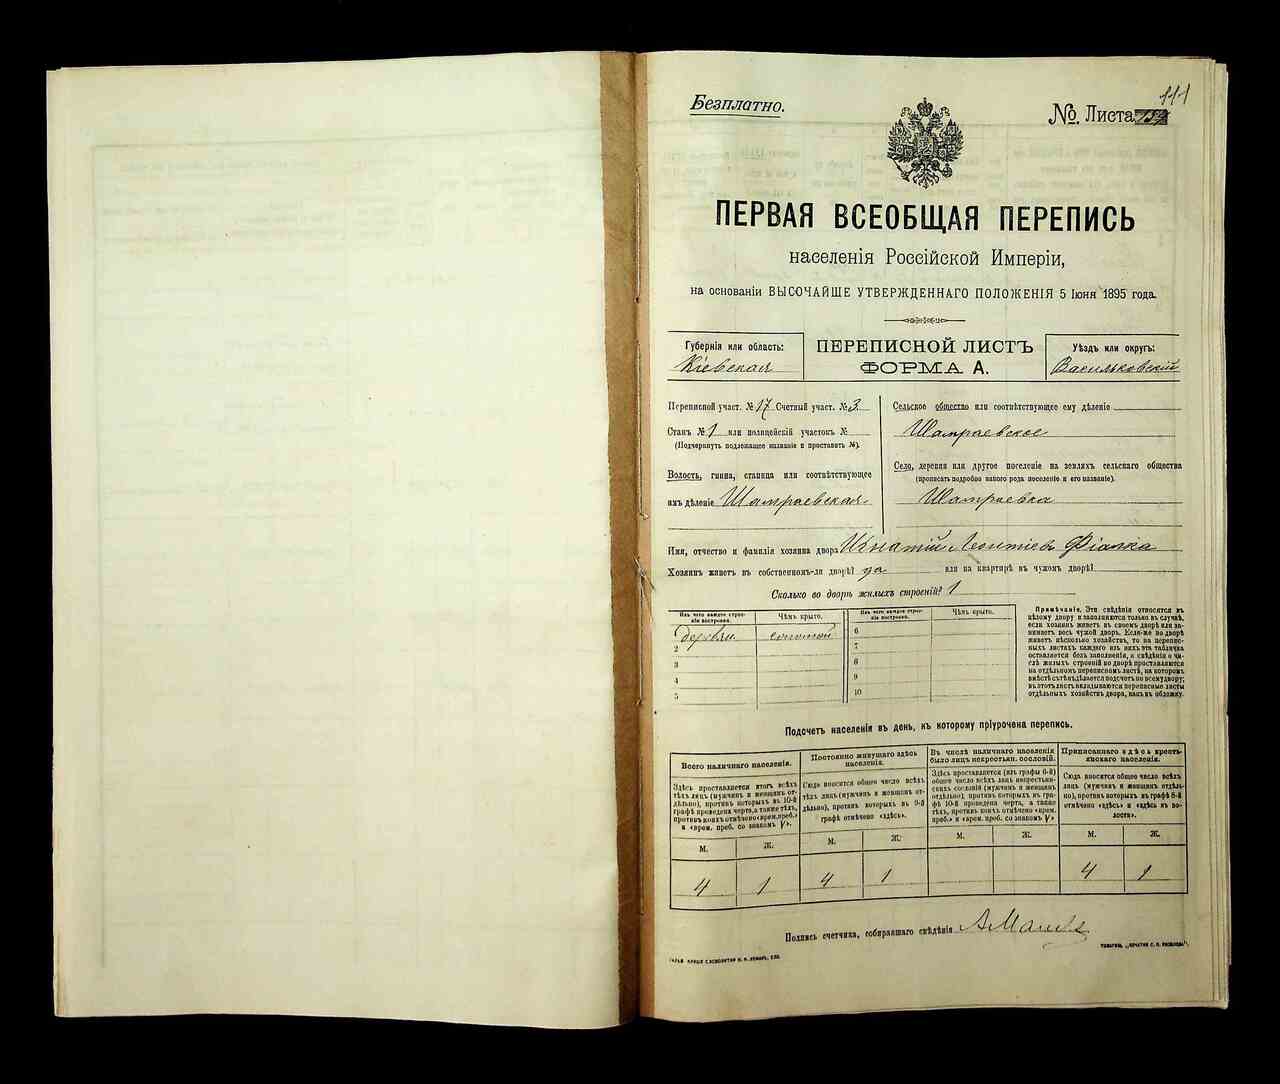 Безплатно.
№ Листа
111
ПЕРВАЯ ВСЕОБЩАЯ ПЕРЕПИСЬ
населенія Россійской Имперіи,
на основаніи ВЫСОЧАЙШЕ УТВЕРЖДЕННАГО ПОЛОЖЕНІЯ 5 Іюня 1895 года.
Губернія или область:
Кіевская
ПЕРЕПИСНОЙ ЛИСТЪ
ФОРМА А.
Уѣздъ или округъ:
Васильковскій
Переписной участ. № 17 Счетный участ. № 3
Станъ № 1 или полицейскій участокъ №
(Подчеркнуть подлежащее названіе и проставить №).
Волость, гмина, станица или соотвѣтствующее
имъ дѣленіе Шамраевская
Сельское общество или соотвѣтствующее ему дѣленіе
Шамраевское
Село, деревня или другое поселеніе на земляхъ сельскаго общества
(прописать подробно какого рода поселеніе и его названіе).
Шамраевка
Имя, отчество и фамилія хозяина двора Игнатій Леонтіев Фіалка
Хозяинъ живетъ въ собственномъ-ли дворѣ? да или на квартирѣ въ чужомъ дворѣ?
Сколько во дворѣ жилыхъ строеній? 1
Изъ чего каждое строеніе построено.
Чѣмъ крыто.
Изъ чего каждое строеніе построено.
Чѣмъ крыто.
деревян. соломой
2
3
4
5
6
7
8
9
10
Примѣчаніе. Эти свѣдѣнія относятся къ
цѣлому двору и заполняются только въ случаѣ,
если хозяинъ живетъ въ своемъ дворѣ или занимаетъ
весь чужой дворъ. Если-же во дворѣ
живетъ нѣсколько хозяйствъ, то на переписныхъ
листахъ каждаго изъ нихъ эта табличка
оставляется безъ заполненія, а свѣдѣнія о числѣ
жилыхъ строеній во дворѣ проставляются
на отдѣльномъ переписномъ листѣ, на которомъ
вмѣстѣ съ тѣмъ дѣлается подсчетъ по всему двору;
въ этотъ листъ вкладываются переписные листы
отдѣльныхъ хозяйствъ двора, какъ въ обложку.
Подсчетъ населенія въ день, къ которому пріурочена перепись.
Всего наличнаго населенія.
Здѣсь проставляется итогъ всѣхъ
тѣхъ лицъ (мужчинъ и женщинъ отдѣльно),
противъ которыхъ въ 10-й
графѣ проведена черта, а также тѣхъ,
противъ коихъ отмѣчено «врем. преб.»
и «врем. преб. со знакомъ V».
Постоянно живущаго здѣсь населенія.
Сюда вносится общее число всѣхъ
тѣхъ лицъ (мужчинъ и женщинъ отдѣльно),
противъ которыхъ въ 9-й
графѣ отмѣчено «здѣсь».
Въ числѣ наличнаго населенія
было лицъ некрестьян. сословій.
Здѣсь проставляется (изъ графы 6-й)
общее число всѣхъ лицъ некрестьянскихъ
сословій (мужчинъ и женщинъ
отдѣльно), противъ которыхъ въ графѣ
10-й проведена черта, а также
тѣхъ, противъ коихъ отмѣчено «врем.
преб.» и «врем. преб. со знакомъ V»
Приписаннаго здѣсь крестьянскаго населенія.
Сюда вносится общее число всѣхъ
лицъ (мужчинъ и женщинъ отдѣльно),
противъ которыхъ въ графѣ 8-й
отмѣчено «здѣсь» и «здѣсь въ волости».
М. Ж. М. Ж. М. Ж. М. Ж.
4 1 4 1 4 1
Подпись счетчика, собиравшаго свѣдѣнія